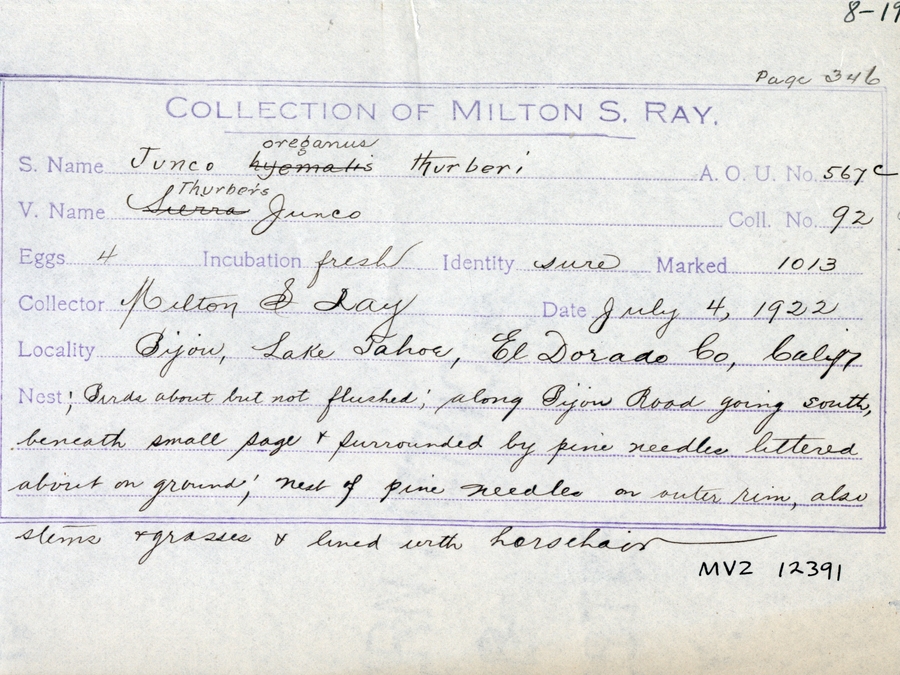 8-19
Page 346
COLLECTION OF MILTON S. RAY.
oreganus
S. Name Junco hyemalis thurberi A. O. U. No. 567c
Thurber's
V. Name Sierra Junco Coll. No. 92
Eggs 4 Incubation fresh Identity sure Marked 1013
Collector Milton S Ray Date July 4, 1922
Locality Bijou, Lake Tahoe, El Dorado Co, Calif
Nest; Birds about but not flushed; along Bijou Road going south,
beneath small sage & surrounded by pine needles littered
about on ground; nest of pine needles on outer rim, also
stems & grasses & lined with horsehair
MVZ 12391